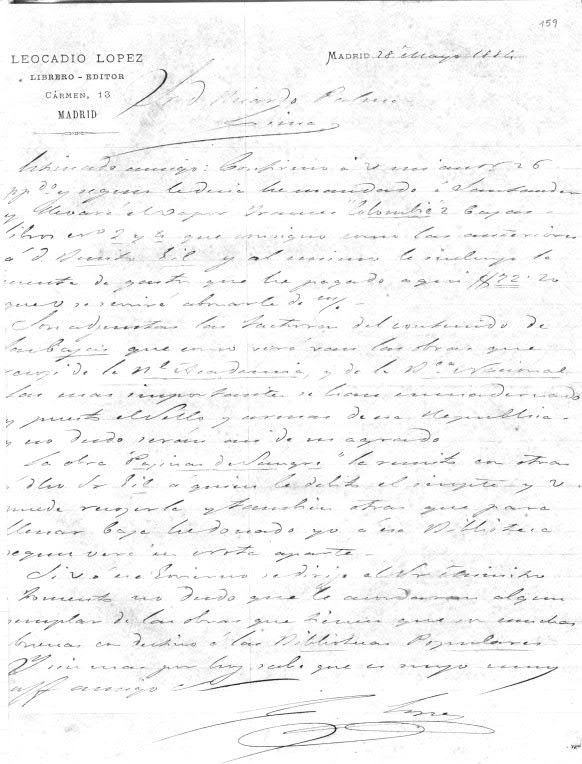 159
LEOCADIO LOPEZ
LIBRERO-EDITOR
CÁRMEN, 13
MADRID
MADRID 28 Mayo 1884
Sr. d. Ricardo Palma
Lima
Estimado amigo: Confirmo á V mi anter 26
pp.do y segun le decia he mandado á Santander
y llevará el vapor frances "Colombie" 2 cajas
libros nos 3 y 4 que consigno como las anteriores
á d. Benito Gil y al mismo le incluyo la
cuenta de gastos que he pagado aqui
que V se servirá abonarle de m/c.
Son adjuntas las facturas del contenido de
las cajas que como verá van las obras que
de la Rl. Academia, y de la Bca Nacional
las mas importantes se han encuadernado
y puesto el sello y armas de esa Republica
y no dudo seran asi de su agrado
La obra "Paginas de Sangre" la remito con otras
á dho Sr Gil á quien le debit el importe y V.
puede recojerla y tambien otras que para
llenar caja he donado yo á esa Biblioteca
segun verá en nota aparte.
Si V ó ese Gobierno se dirije al Sr Ministro
Fomento no dudo que le mandaran algun
ejemplar de las obras que tienen que son muchas
y buenas con destino á las Bibliotecas Populares
Y sin mas por hoy sabe que es suyo muy
aff amigo
L. Lopez